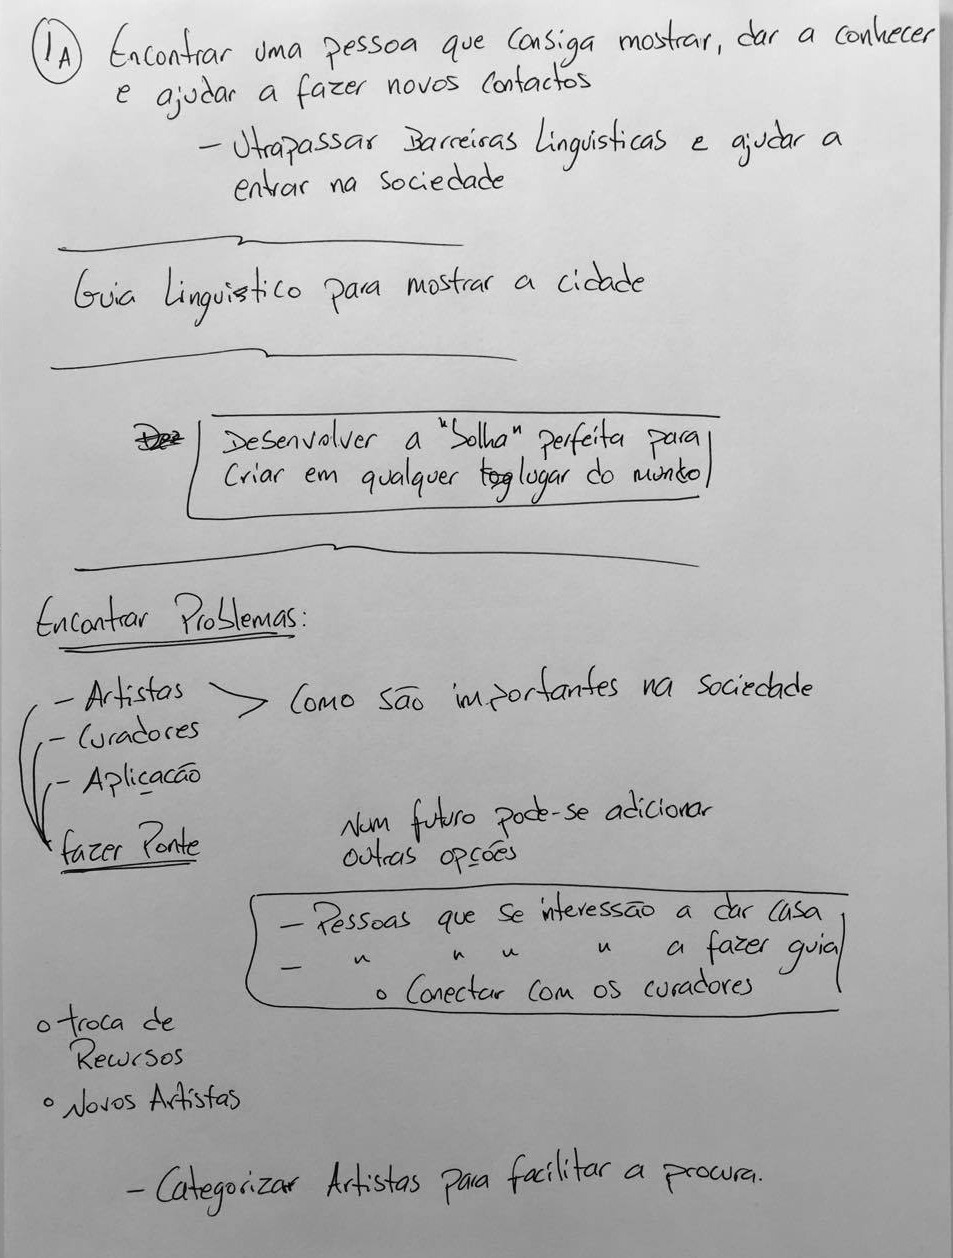 1A Encontrar uma pessoa que consiga mostrar, dar a conhecer
e ajudar a fazer novos contactos
- Utrapassar Barreiras Linguisticas e ajudar a
entrar na sociedade
Guia Linguistico para mostrar a cidade
Desenvolver a "bolha" perfeita para
Criar em qualquer lugar do mundo
Encontrar Problemas:
- Artistas > Como são importantes na sociedade
- Curadores
- Aplicacão
fazer Ponte
Num futuro pode-se adicionar
outras opções
- Pessoas que se interessão a dar casa
- " " " " a fazer guia
o Conectar com os curadores
o troca de
Recursos
o Novos Artistas
- Categorizar Artistas para facilitar a procura.